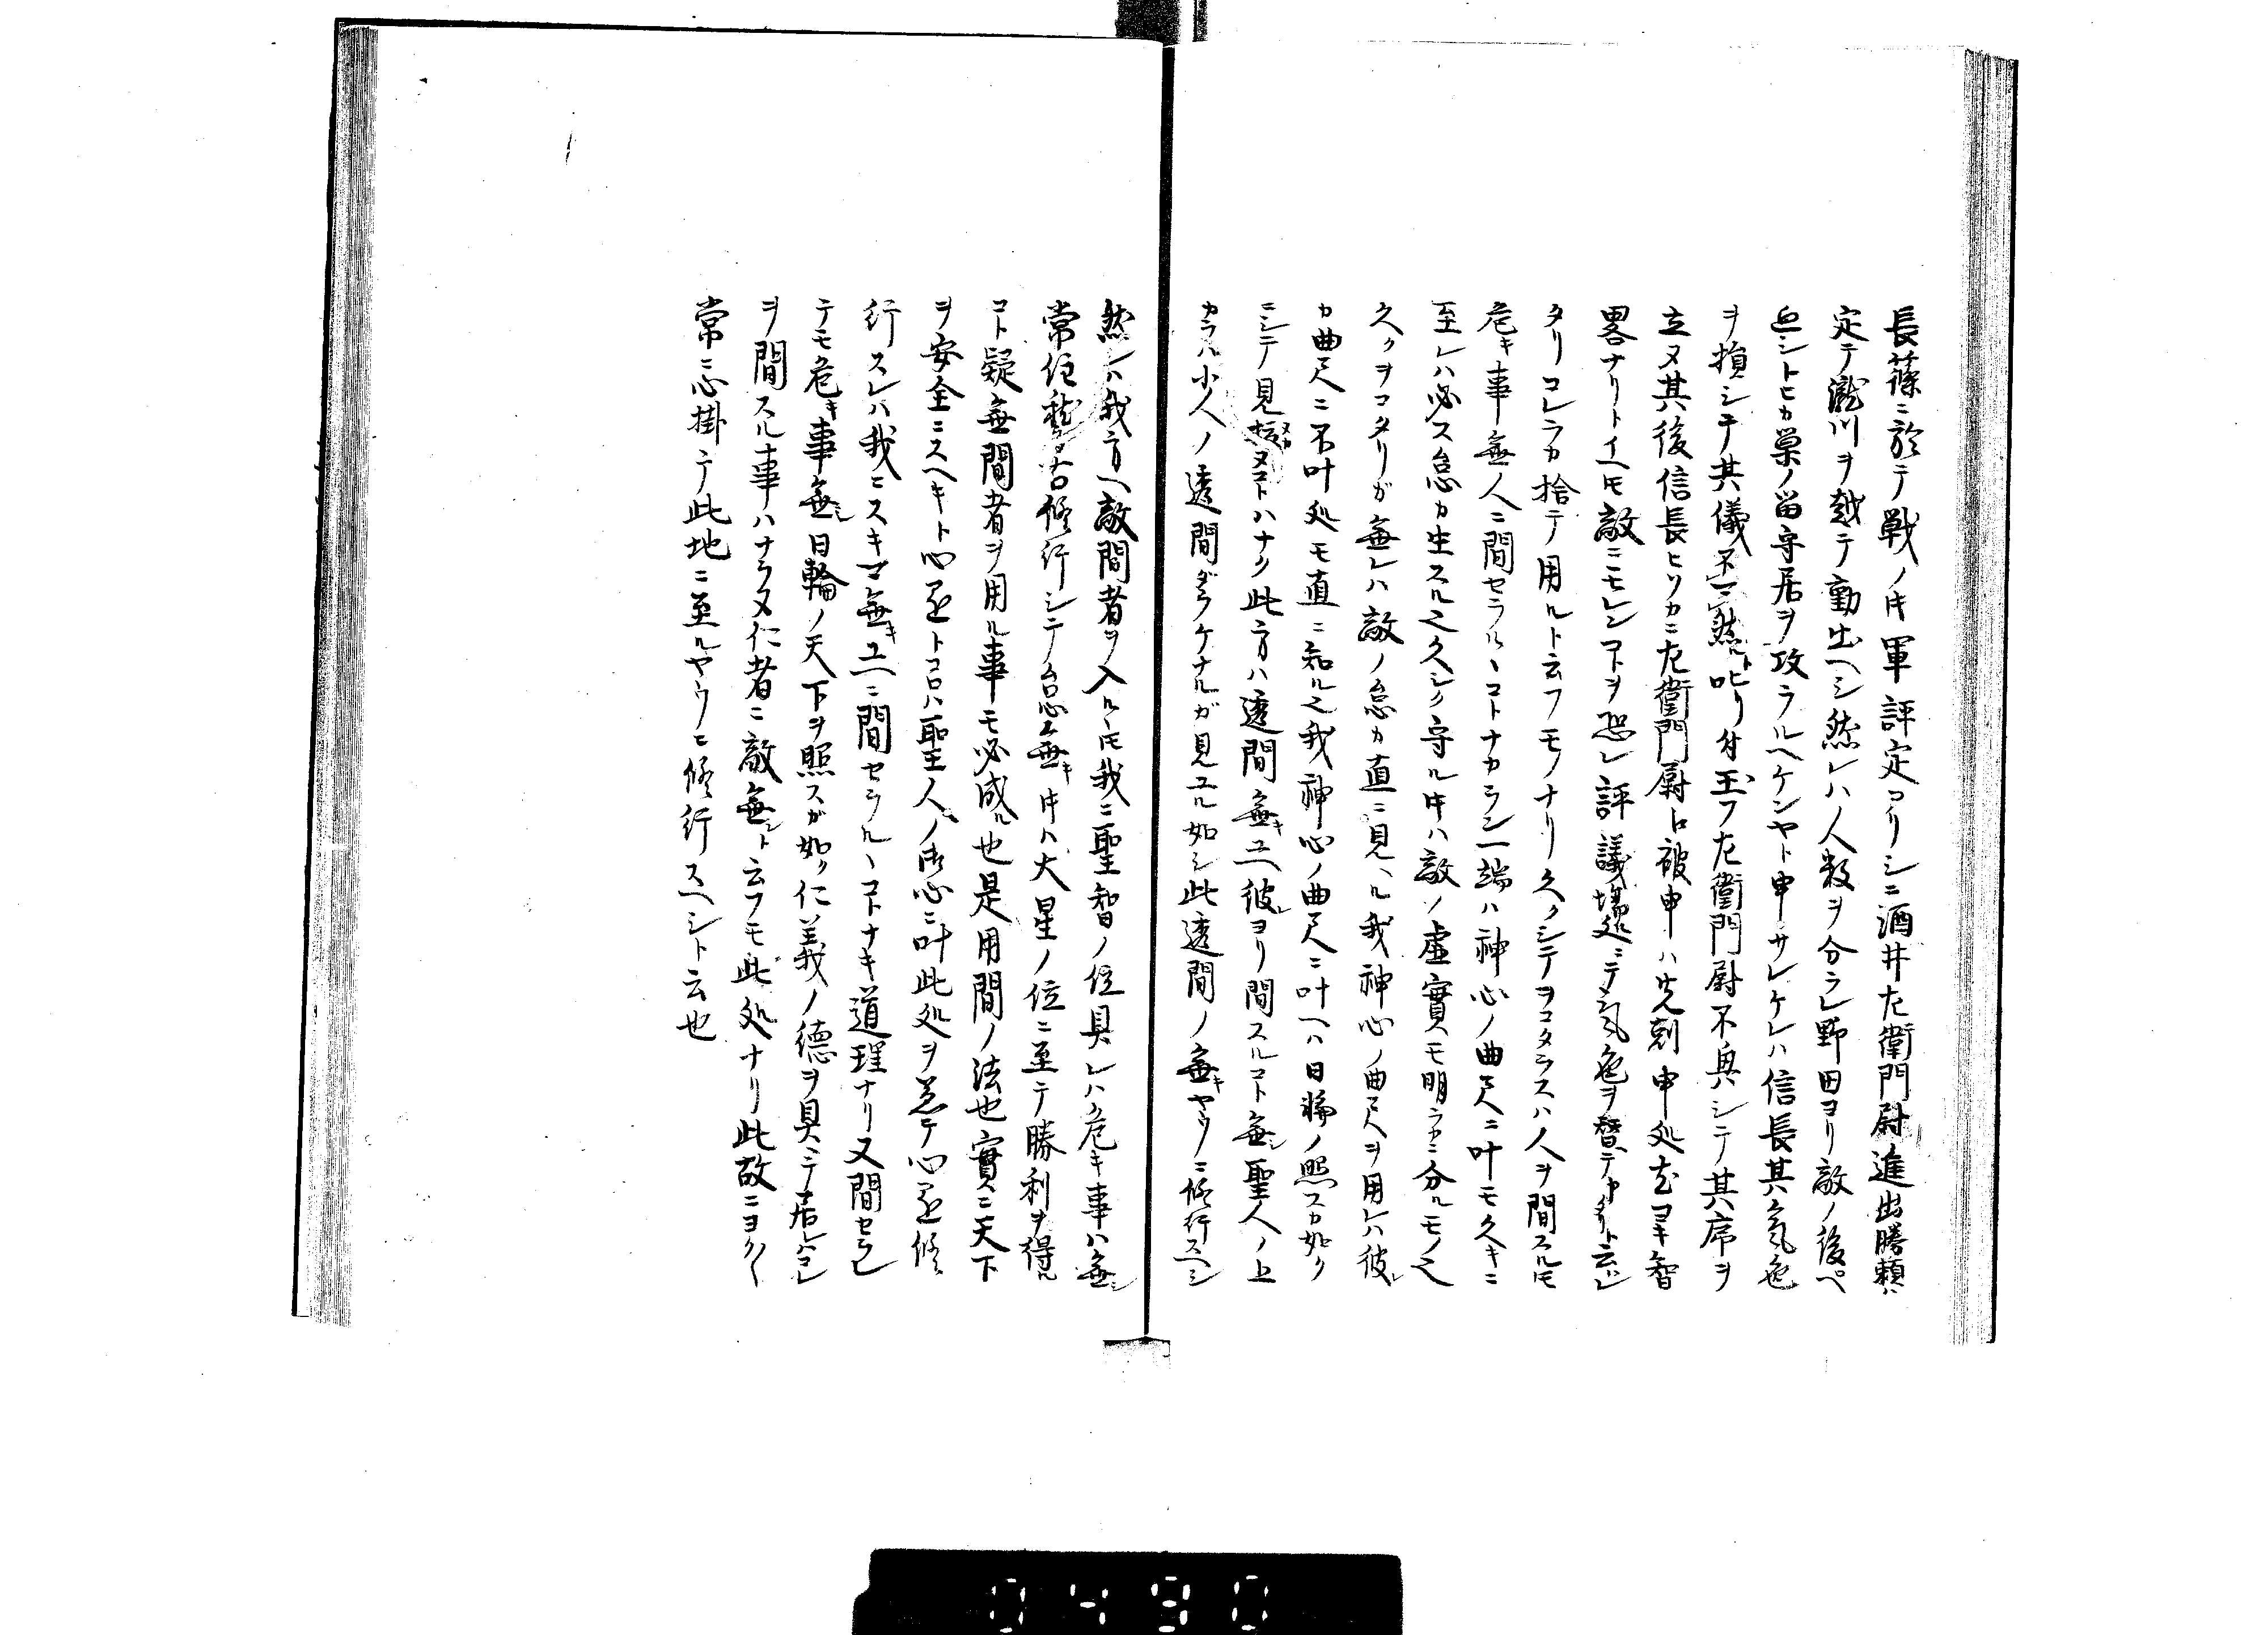 長篠ニ於テ戦ノ吽軍評定アリシニ酒井左衛門尉進出勝頼ハ
定テ瀧川ヲ越テ働出ヘシ然レハ人数ヲ分ラレ野田ヨリ敵ノ後ヘ
シトヒカ巣ノ留守居ヲ攻ラルヘケンヤト申サレケレハ信長其気色
ヲ損シテ其儀不可然ト叱リ付玉フ左衛門尉不興シテ其席ヲ
立ヌ其後信長ヒソカニ左衛門尉ニ被申ハ先刻申処尤ヨキ智
畧ナリトイヘ𪜈敵ニモレンコトヲ恐レ評議場ニテ気色ヲ替テ
タリコレラカ捨テ用ルト云フモノナリ久クシテヲコタラスハ人ヲ間スル𪜈
危キ事無人ニ間セラルヽコトナカラン一端ハ神心ノ曲尺ニ叶モ久キニ
至レハ必ス怠カ生スル也久シク守ル吽ハ敵ノ虚實モ明ラカニ分ルモノ也
久クヲコタリガ無レハ敵ノ怠カ直ニ見ヘル我神心ノ曲尺ヲ用レハ彼レ
カ曲尺ニ不叶処モ直ニ知ル也我神心ノ曲尺ニ叶ヘハ日輪ノ照スカ如ク
ニシテ見ヌコトハナク此方ハ透間無キユヘ彼レヨリ間スルコト無シ聖人ノ上
カラハ小人ノ透間ダラケナルガ見ユル如シ此透間ノ無キヤウニ修行スヘシ
然レハ我方ヘ敵間者ヲ入ルヽ𪜈我ニ聖智ノ位具レハ危キ事ハ無シ
常住稽古修行シテ怠無キ吽ハ大星ノ位ニ至テ勝利ヲ得ル
コト疑無間者ヲ用ル事モ必成ル也是用間ノ法也實ニ天下
ヲ安全ニスヘキト心正トコロハ聖人ノ御心ニ叶此処ヲ差テ心正修
行スレハ我ニスキマ無キユヘニ間セラルヽコトナキ道理ナリ又間セラレ
テモ危キ事無シ日輪ノ天下ヲ照スガ如ク仁義ノ徳ヲ具ヘテ居レハコレ
ヲ間スル事ハナラヌ仁者ニ敵無シト云フモ此処ナリ此故ニヨク〱
常ニ心掛テ此地ニ至ルヤウニ修行スヘシト云也
0490